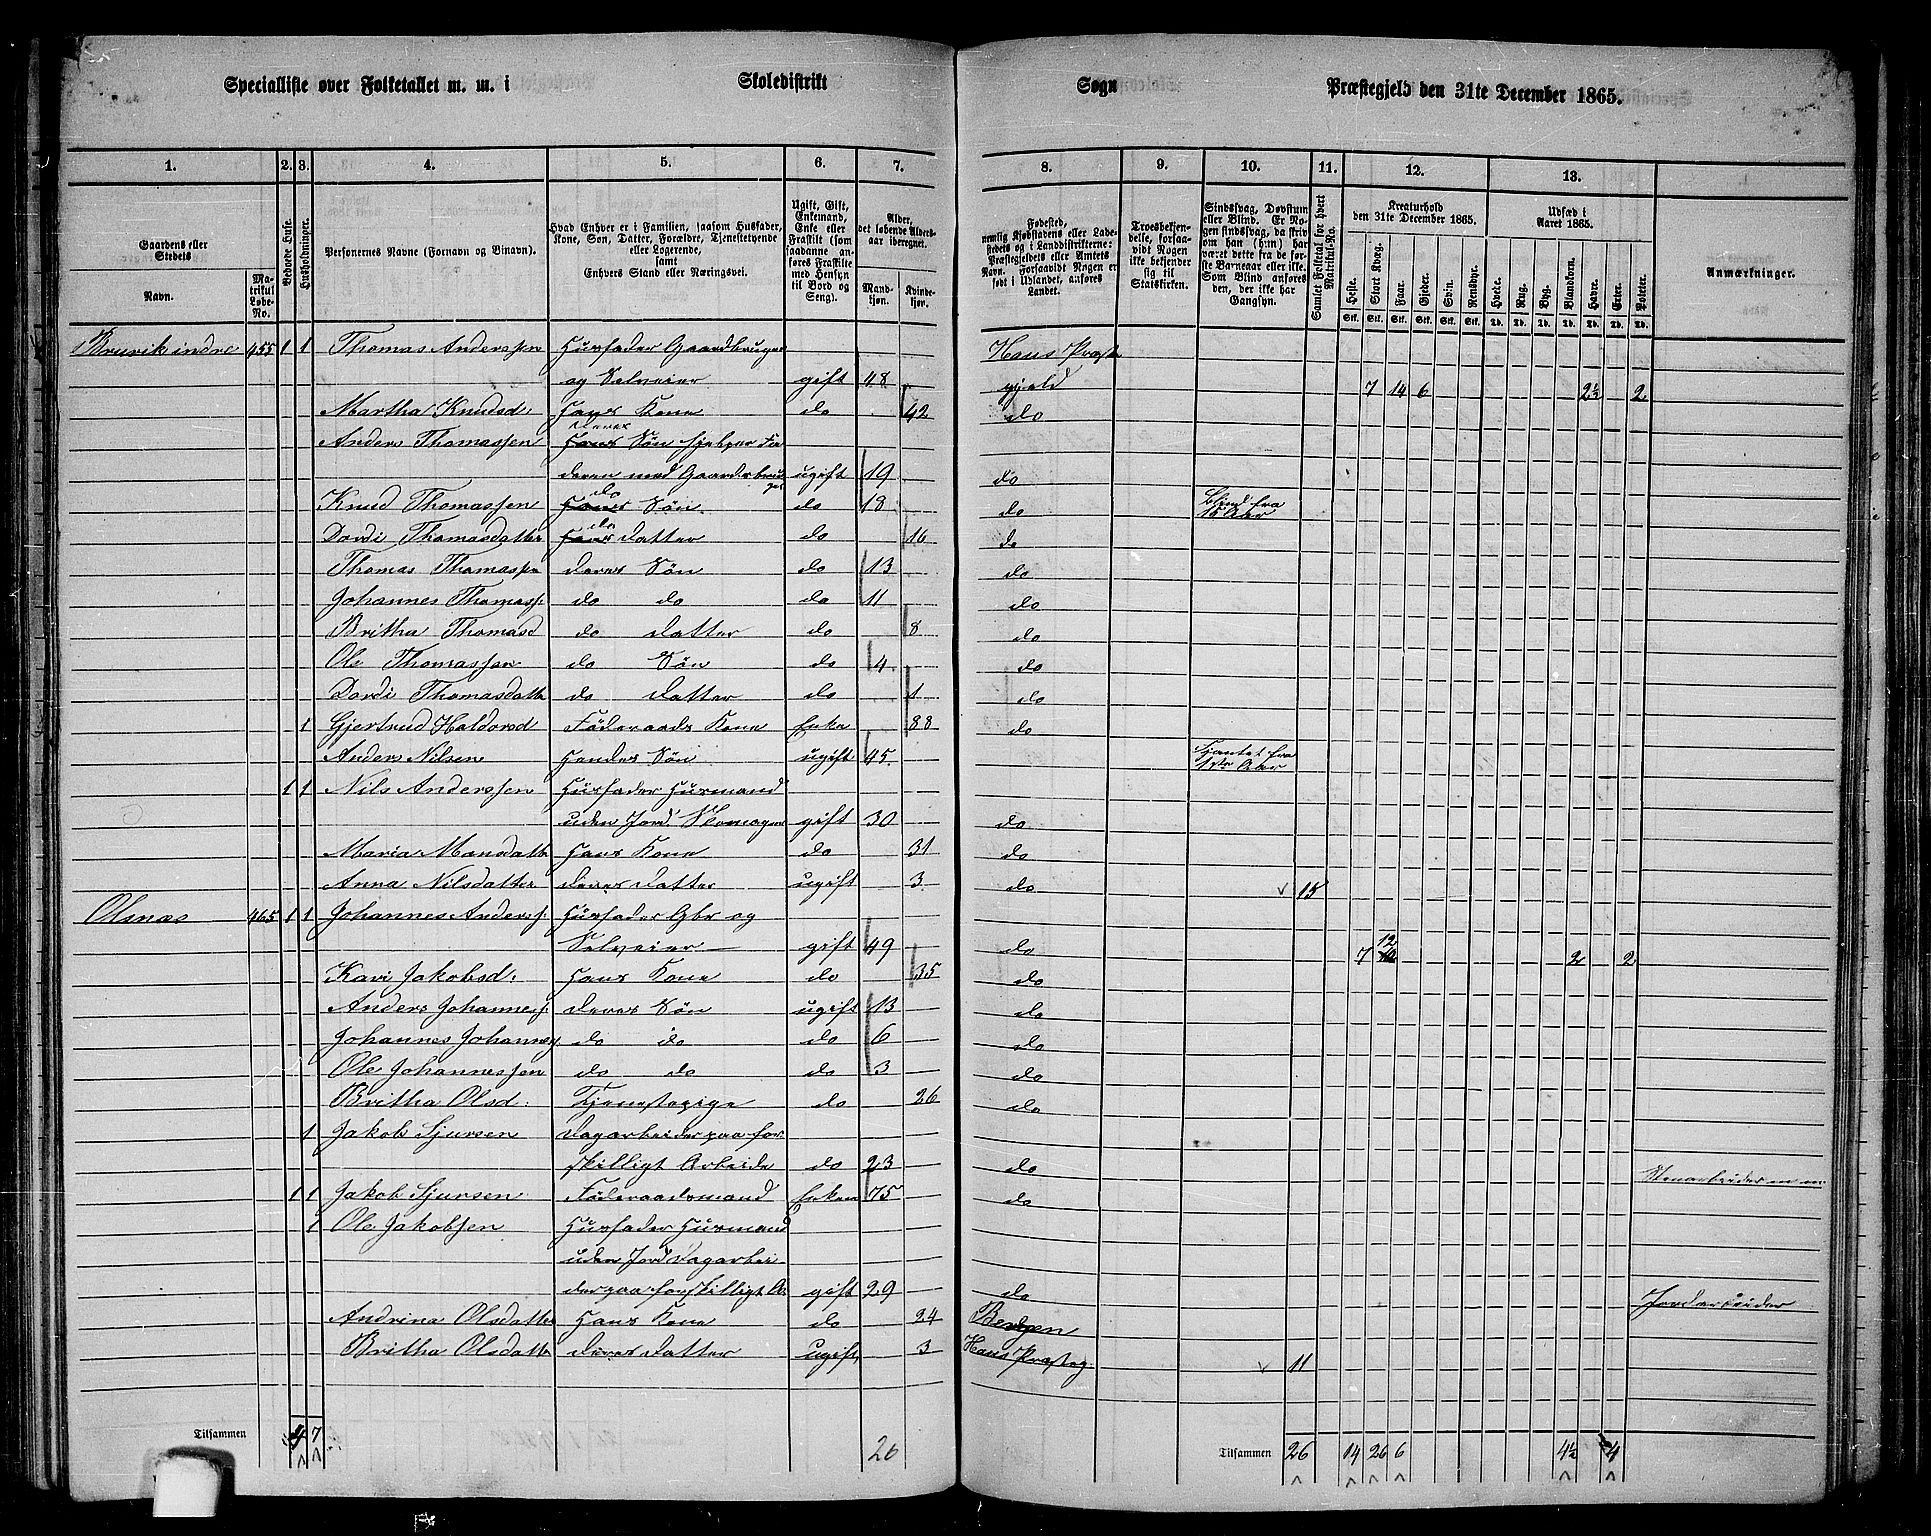 Specialliste over Folketallet m. m. i Skoledistrikt Sogn Præstegjeld den 31te December 1865.
1. 2. 3. 4. 5. 6. 7. 8. 9. 10. 11. 12. 13.
Gaardens eller Stedets
Navn.
Matrikul Løbe-No.
Beboede Huse.
Husholdninger.
Personernes Navne (Fornavn og Binavn).
Hvad Enhver er i Familien, saasom Husfader, Kone, Søn, Datter, Forældre, Tjenestetyende eller Logerende, samt Enhvers Stand eller Næringsvei.
Ugift, Gift, Enkemand, Enke eller Fraskilt (som saadanne anføres Fraskilte med Hensyn til Bord og Seng).
Alder, det løbende Alders-aar iberegnet.
Mand-kjøn.
Kvinde-kjøn.
Fødested, nemlig Kjøbstadens eller Ladestedets og i Landdistrikterne: Præstegjeldets eller Amtets Navn. Forsaavidt Nogen er født i Udlandet, anføres Landet.
Troesbekjendelse, forsaavidt Nogen ikke bekjender sig til Statskirken.
Sindssvag, Døvstum eller Blind. Er Nogen sindssvag, da skriv om han (hun) har været dette fra de første Barneaar eller ikke. Som Blind anføres den, der ikke har Gangsyn.
Samlet Folketal for hvert Matrikul-No.
Kreaturhold den 31te December 1865.
Heste. Stort Kvæg. Faar. Gjeder. Svin. Rensdyr.
Udsæd i Aaret 1865.
Hvede. Rug. Byg. Blandkorn. Havre. Erter. Poteter.
Anmærkninger.
Bruvik indre 455 1 1 Thomas Anderssen Husfader Gaardbruger Hans Præste
og Selveier gift 48 gjeld 7 14 6 2½ 2
Martha Knudsd: Hans Kone do 42 do
Anders Thomassen Deres Søn hjelper Fa
deren med Gaardsbrug ugift 19 do
Knud Thomassen do Søn do 18 do Blind fra 15 Aar
Dordi Thomasdatter do Datter do 16 do
Thomas Thomassen deres Søn do 13 do
Johannes Thomass: do do do 11 do
Britha Thomasd do Datter do 8 do
Ole Thomassen do Søn do 4 do
Dordi Thomasdatte do Datter do 1 do
1 Gjertrud Haldorsd Føderaads Kone Enke 88 do
Anders Nilsen Hendes Søn ugift 45
1 1 Nils Anderssen Husfader Husmand
uden Jord Skomager gift 30 do
Maria Monsdatte Hans Kone do 31 do
Anna Nilsdatter deres Datter ugift 3 do 15
Olsnæs 465 1 1 Johannes Anderss: Husfader Gbr og
Selveier gift 49 do 7 12 2 2
Kari Jakobsd: Hans Kone do 35 do
Anders Johanness: deres Søn ugift 13 do
Johannes Johanness: do do do 6 do
Ole Johannessen do do do 3 do
Britha Olsd: Tjenestepige do 26 do
1 Jakob Sjursen Dagarbeider paa for
skilligt Arbeide do 23 do
1 1 Jakob Sjursen Føderaadsmand Enkem 75 do
1 Ole Jakobsen Husfader Husmand
uden Jord Dagarbei
der paa forskilligt A: gift 29 do Jordarbeider
Andrina Olsdatter Hans Kone do 24 Bergen
Britha Olsdatte deres Datter ugift 3 Hans Præsteg 11
Tilsammen 4 7 26 Tilsammen 26 14 26 6 4½ 4